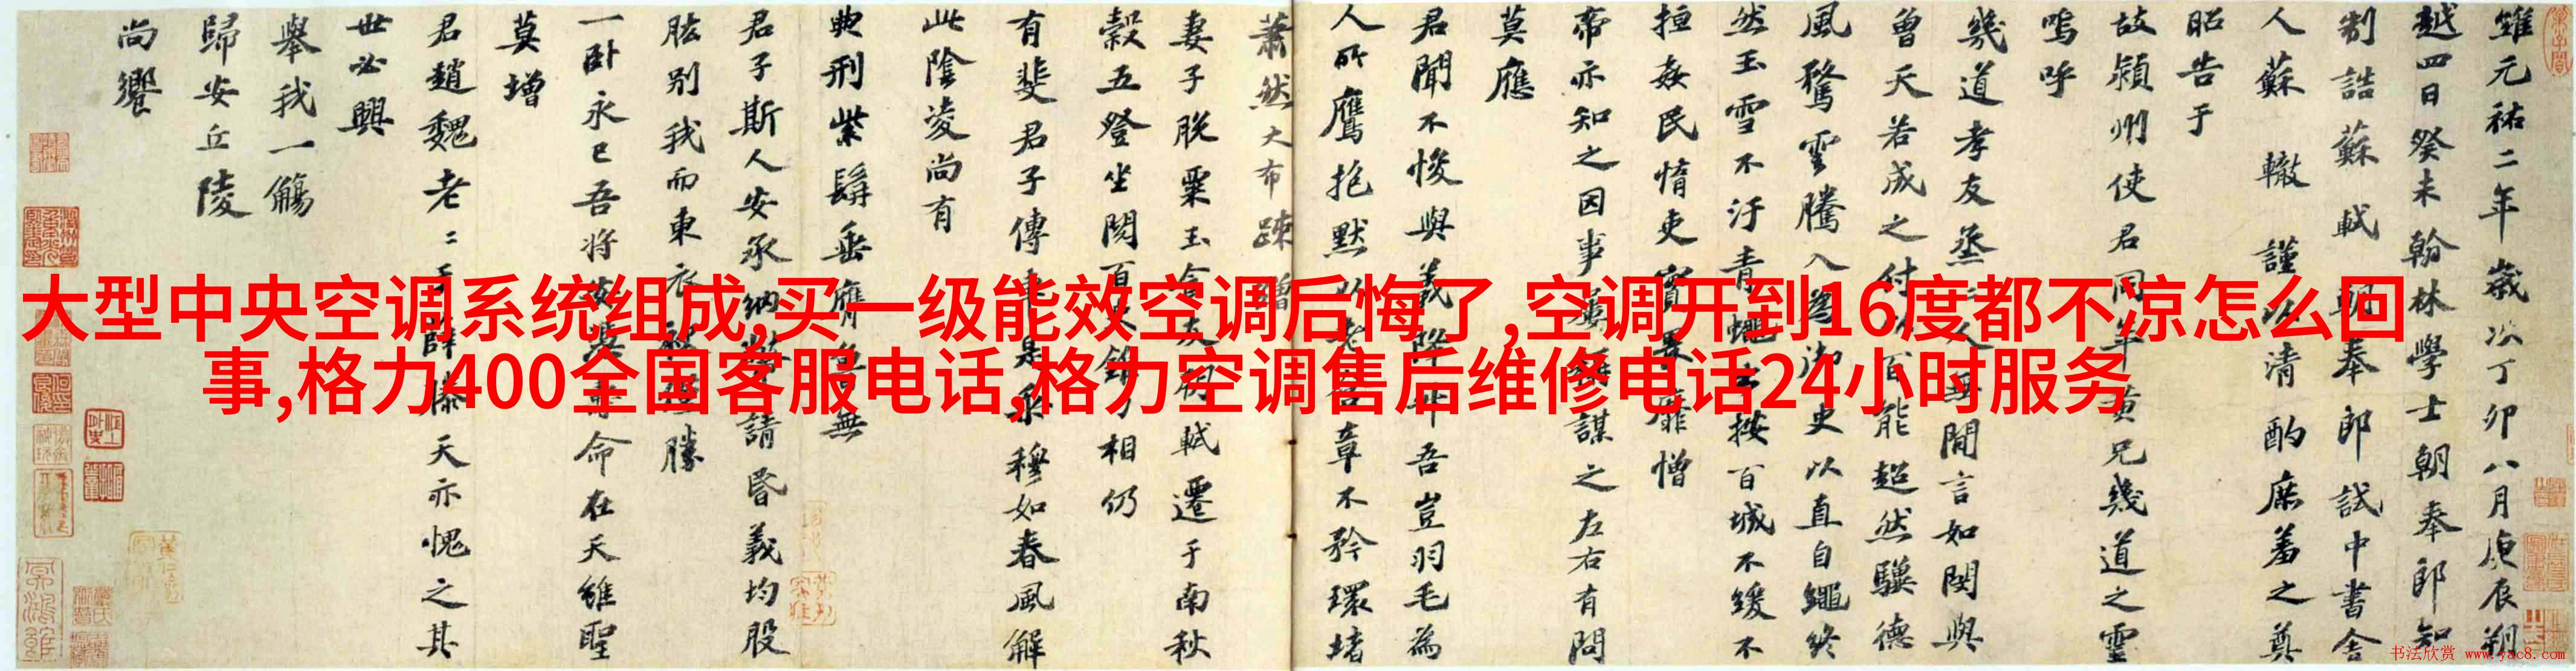 維元祐二年歲次丁卯八月庚辰朔
越四日癸未翰林學士朝奉郎知
制誥蘇軾朝奉郎試中書舍
人蘇轍謹以清酌庶羞之奠
昭告于
故潁州使君同年黃兄幾道之靈
嗚呼
幾道孝友烝二人無間言如閔與
曾天若成之付以百能超然驥德
風騖雲騰入為御史以直自繩終
然玉雪不汙青蠅出按百城不緩不
擅姦民惰吏實畏靡憎
帝亦知之因事屢稱謀之左右有問
莫應
君聞不悛與義降升吾豈羽毛為
人所鷹抱默以老終章不矜環堵
蕭然大布疎繒
妻子脫粟玉食友朋軾遷于南秋
穀五登坐閱百吏錐刀相仍
有斐君子傳車是乘穆如春風解
此陰凌尚有
典刑紫髯垂膺魯無
君子斯人安承納幣請昏義均股
肱別我而東衣袂僅勝
一臥永已吾將安憑壽命在天雖聖
莫增
君趙魏老二于薛滕天亦愧之其
世必興
舉我一觴
歸安丘陵
尚饗
大型中央空调系统组成,买一级能效空调后悔了,空调开到16度都不凉怎么回
事,格力400全国客服电话,格力空调售后维修电话24小时服务
书法欣赏 www.yac8.com